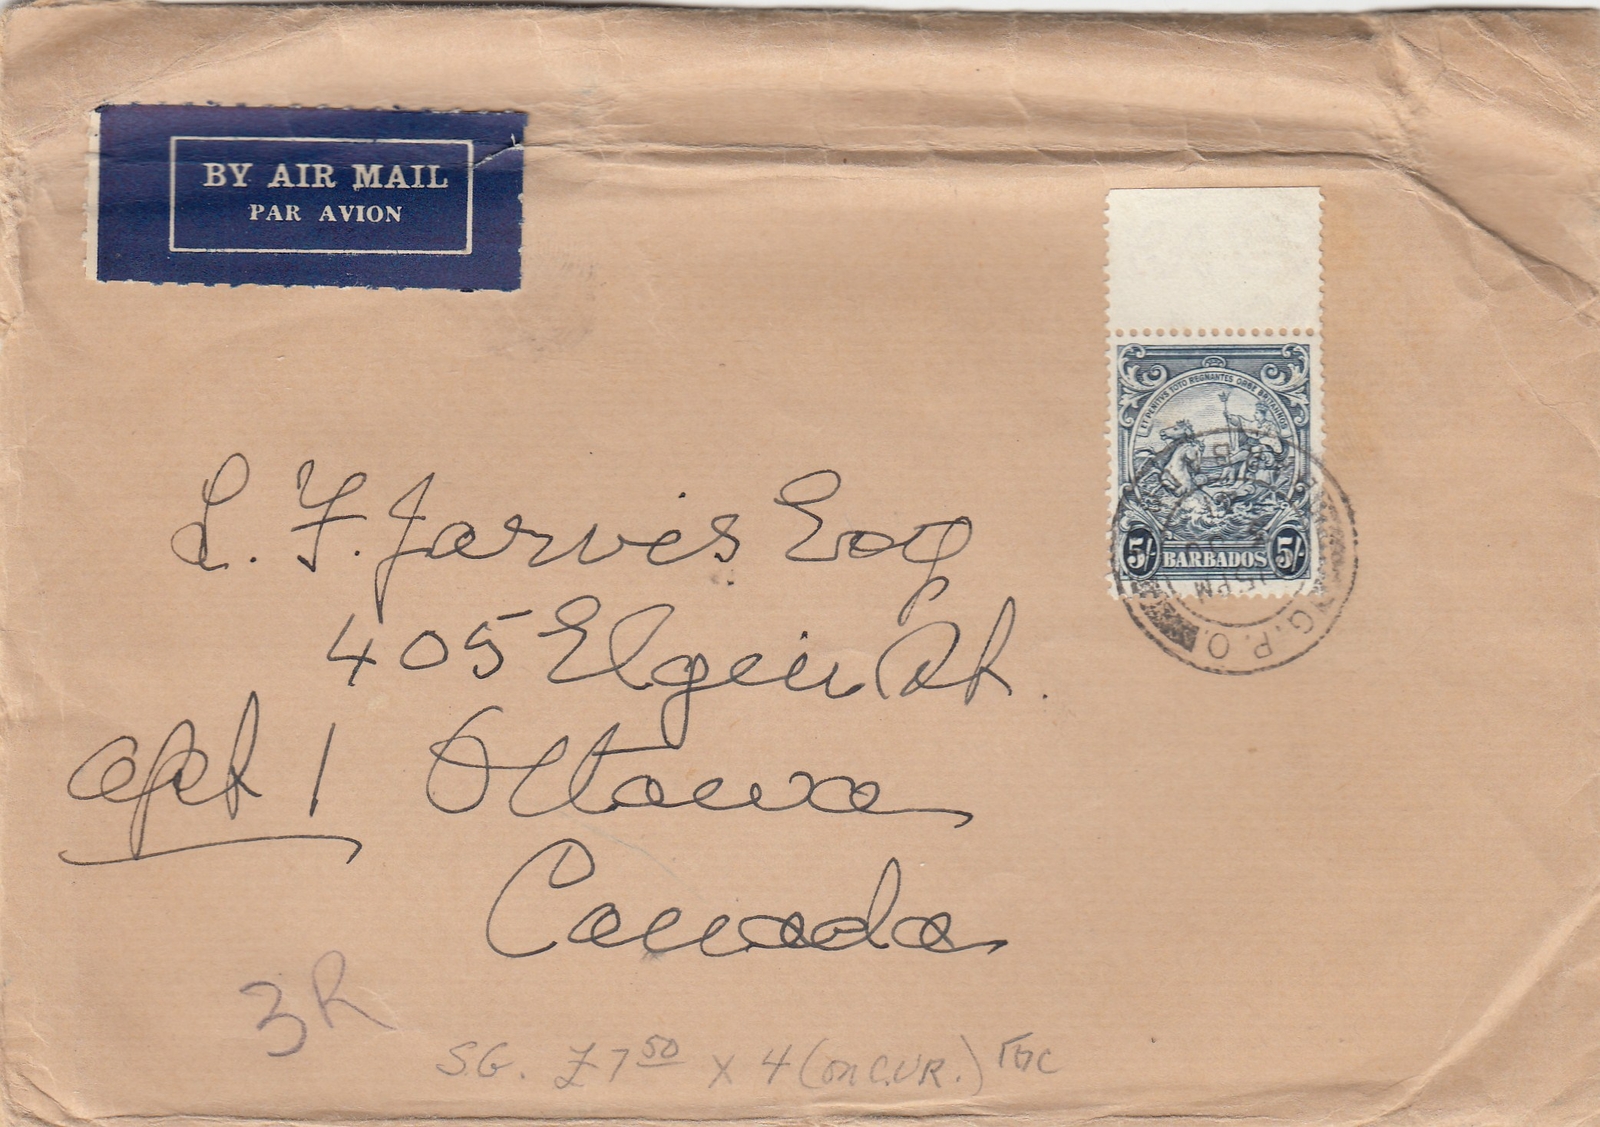 BY AIR MAIL
PAR AVION
ET PENITVS TOTO REGNANTES ORBE BRITANNOS
5/- BARBADOS 5/-
G.P.O.
L. F. Jarvis Esq
405 Elgin St.
apt 1 Ottawa
Canada
3R
S.G. £7 50 x 4 (on C.VR.)